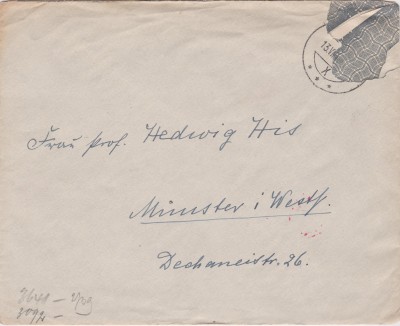 13.VI
X
Frau Prof. Hedwig His
Münster i/Westf.
Dechaneistr. 26.